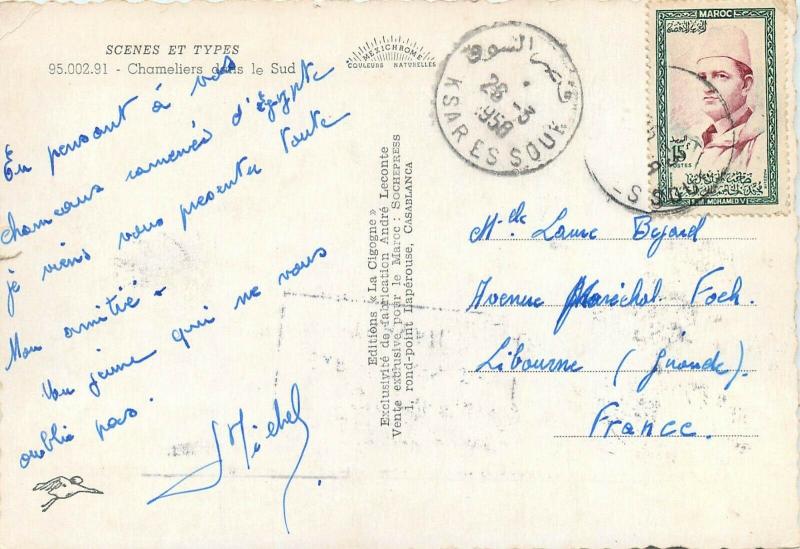 SCENES ET TYPES
95.002.91 - Chameliers dans le Sud
MEXICHROME
COULEURS NATURELLES
En pensant à vos
chameaux ramenés d'Egypte
je viens vous présenter toute
Mon amitié -
Un jeune qui ne vous
oublie pas.
Michel
Editions « La Cigogne »
Exclusivité de fabrication André Leconte
Vente exclusive pour le Maroc : SOCHEPRESS
1, rond-point Lapérouse, CASABLANCA
قصر السوق
26 - 3
1958
KSAR ES SOUK
MAROC
المملكة المغربية
البريد
15F
POSTES
S.M. MOHAMED V
Melle Laure Bejard
Avenue Maréchal Foch.
Libourne (Gironde).
France.